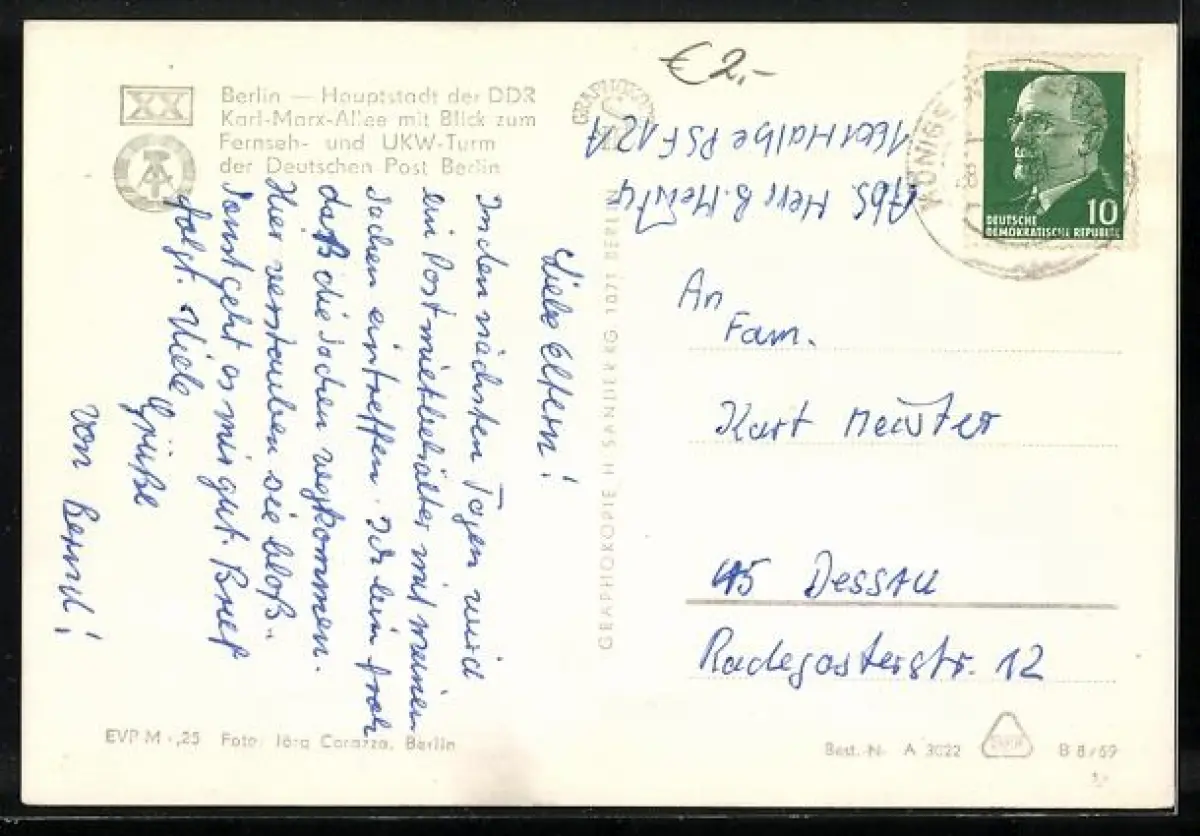 XX
Berlin — Hauptstadt der DDR
Karl-Marx-Allee mit Blick zum
Fernseh- und UKW-Turm
der Deutschen Post Berlin
Liebe Eltern!
In den nächsten Tagen wird
ein Postmietbehälter mit meinen
Sachen eintreffen. Ich bin froh
daß die Sachen wegkommen.
Hier verstauben sie bloß.
Sonst geht es mir gut. Brief
folgt. Viele
Grüße
von Bernd!
EVP M -,25 Foto: Jörg Corazza, Berlin
GRAPHOKOPIE H SANDER KG 1071 BERLIN
€ 2,-
Abs. Herr B.
1601 Halbe PSF 12A
KÖNIGS
DEUTSCHE
DEMOKRATISCHE REPUBLIK
10
An
Fam.
Kurt Meister
45 Dessau
Radegasterstr. 12
Best.-Nr. A 3022
B 8/69